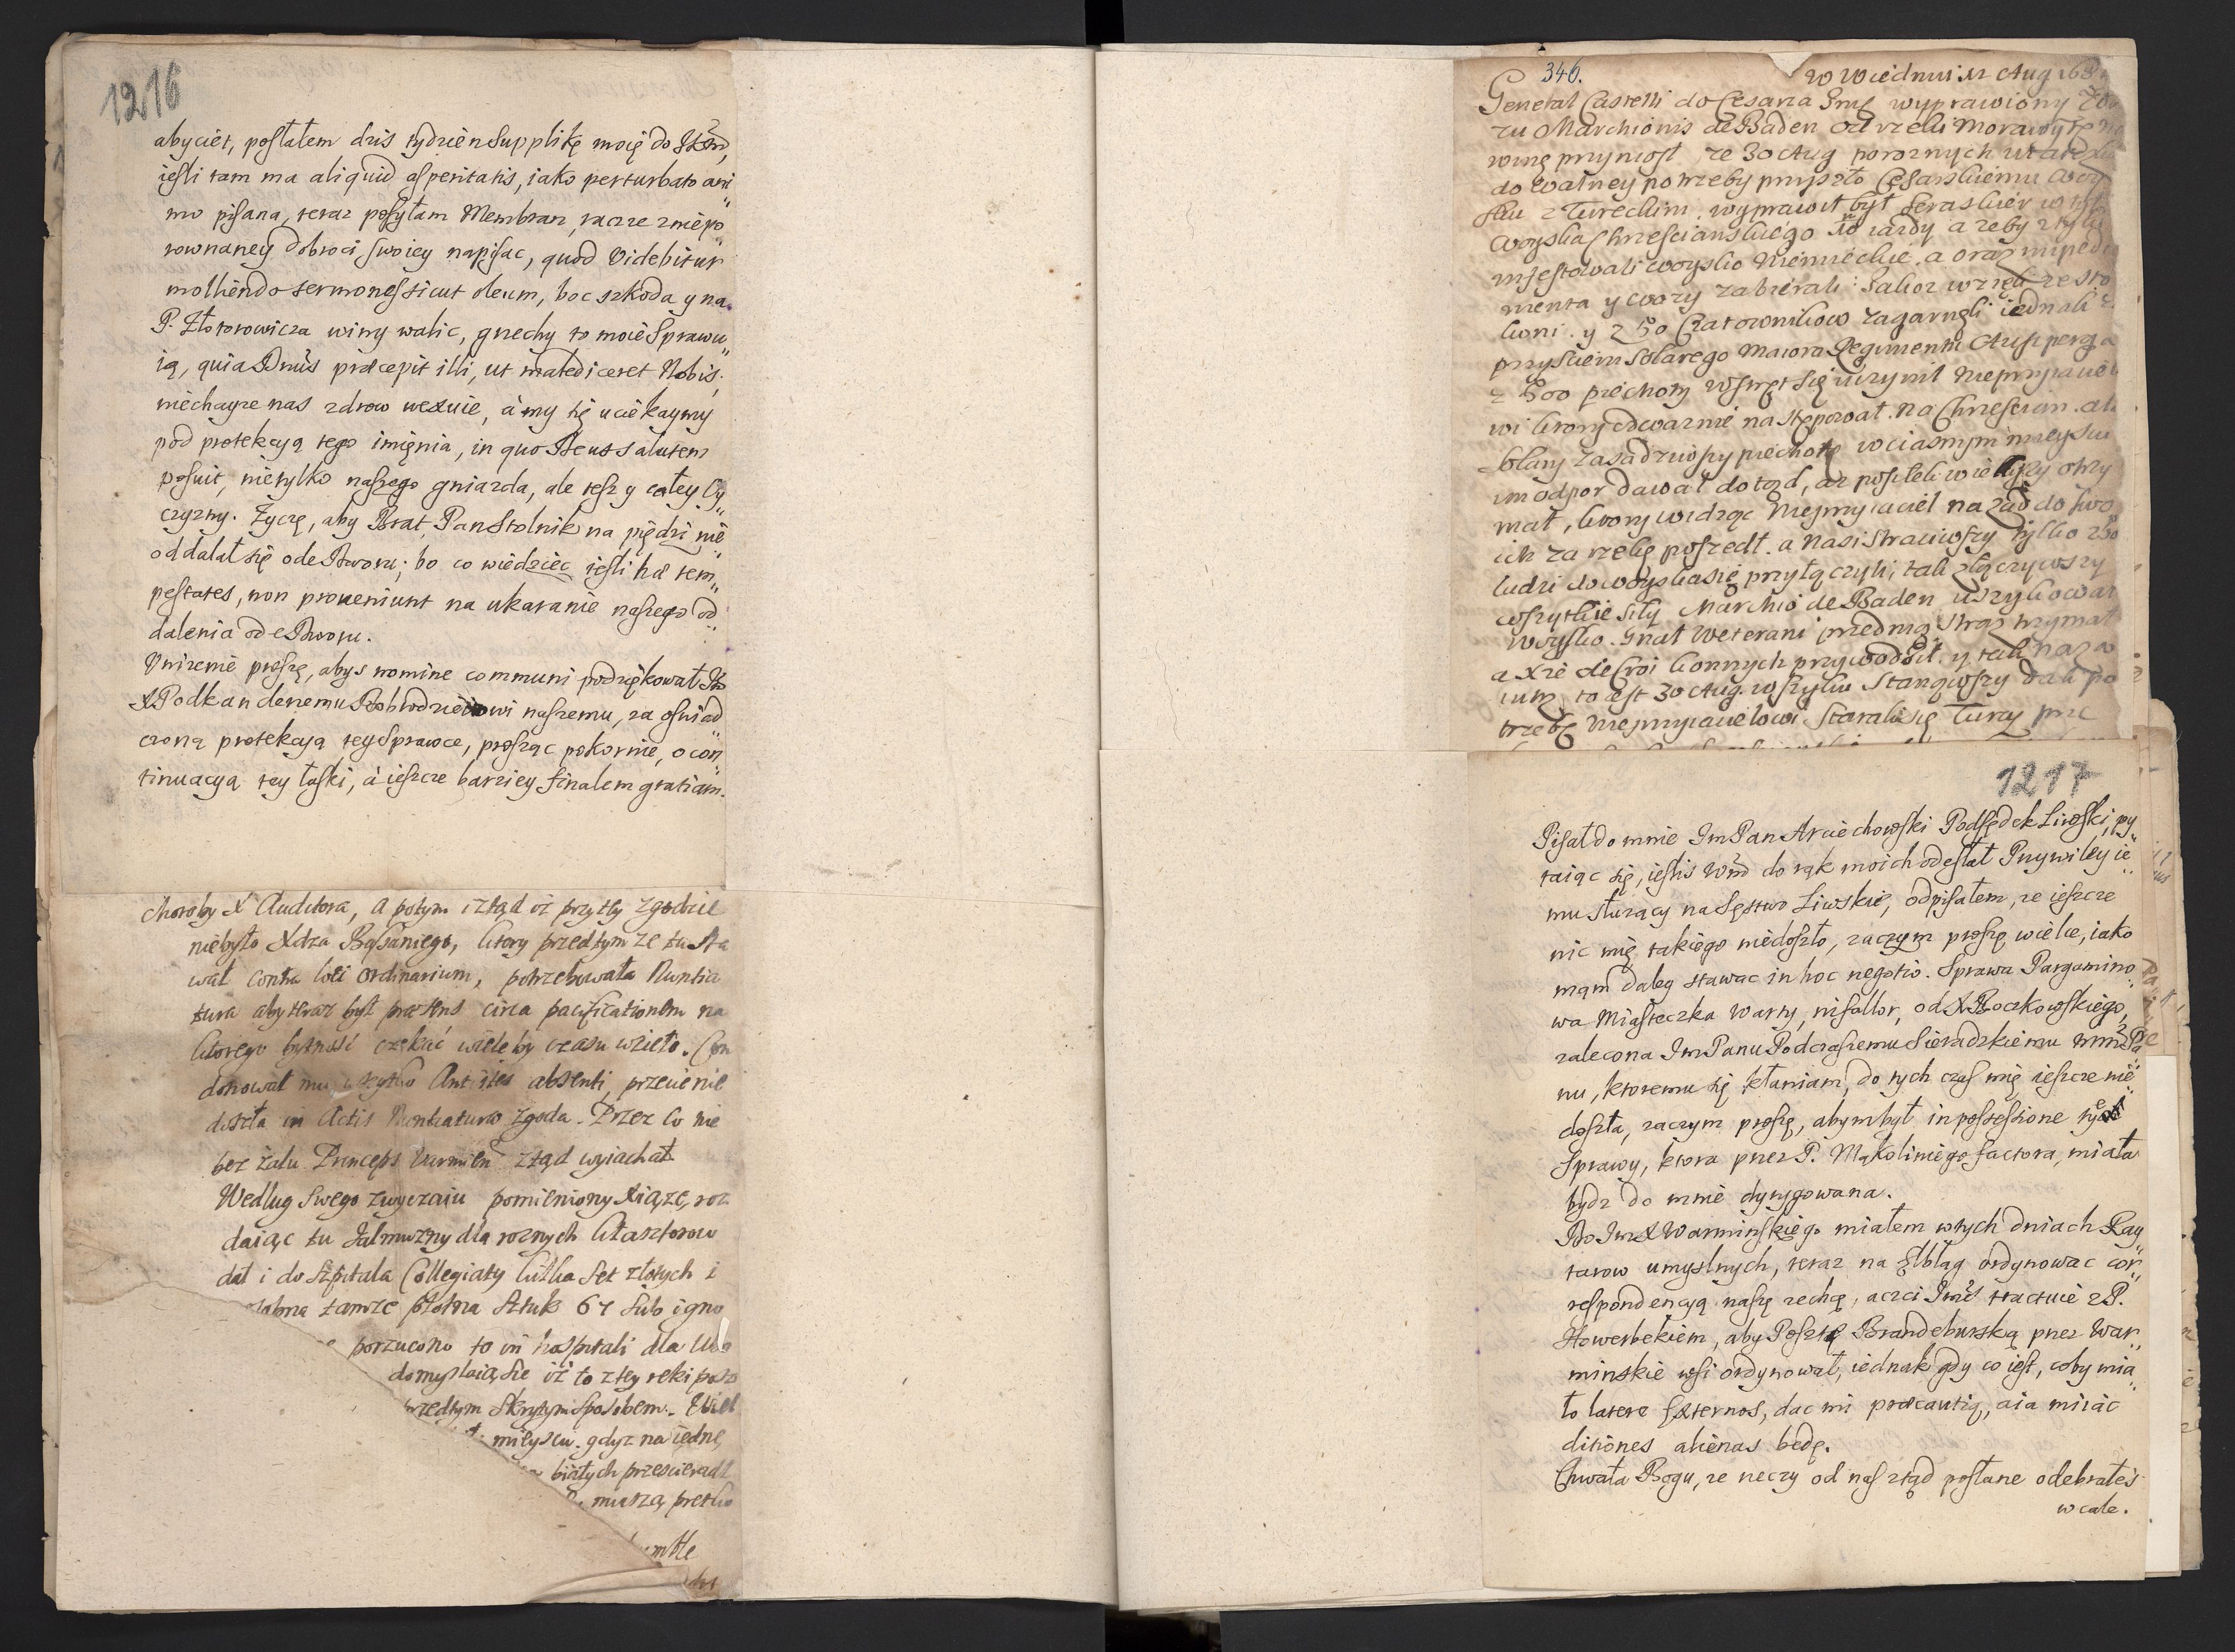 1216
abyciet, posłałem dzis tydzien Supplikę moię do
iesli tam ma aliquid asperitatis, iako perturbato ani„
mo pisana, teraz posyłam Membran, raczze z niepo„
rownaney dobroci swoiey napisac, quod videbitur
molliendo sermones sicut oleum, boc szkoda y na
P. Złotorowicza winy walic, grzechy to moie sprawu„
ią, quia Dnũs præcepit illi, ut malediceret Nobis;
niechayze nas zdrow wexuie, à my się uciekaymy
pod protekcyą tego imięnia, in quo Deus salutem
posuit, nietylko naszego gniazda, ale tesz y całey Oy„
czyzny. Zyczę, aby Brat, Pan Stolnik na piędzi nie
oddalał się ode Dworu; bo co wiedziec iesli hæ tem„
pestates, non proueniunt na ukaranie naszego od„
dalenia od e Dworu.
Unizenie proszę, abys nomine communi podziękował
X Podkanclerzemu Dobrodzieiowi naszemu, za oswiad„
czoną protekcyą tey Sprawce, prosząc pokornie, o con„
tinuacyą tey łaski, à ieszcze barziey finalem gratiam.
choroby X Auditora, a potym iztąd iż przy tey zgodzie
niebyło Xdza Bąsaniego, ktory przedtym ze tu sta
wał contra loci ordinarium, potrzebowała Nuntia
tura aby teraz był præsens circa pacificationem na
ktorego bytnosc czekać wiele by czasu wzieło. Con
donował mu wszytko Antistes absenti, przecie nie
doszła in Actis Nuntiaturæ zgoda. Przez co nie
bez żalu Princeps Varmien ztąd wyiachał
Wedlug swego zwyczaiu pomieniony Xiąze, roz
daiąc tu Jalmuzny dla roznych klasztorow
dał i do szpitala Collegiaty kilka set złotych i
tamze płotna sztuk 67 sub igno
porzucono to in hospitali dla
domyslaią sie iż to z tey reki
przedtym skrytym sposobem.
mieyscu. gdyz na iedne
białych przescieradł
muszą
346.
W Wiedniu 12 Aug
General Castelli do Cesarza Jmci wyprawiony
zu Marchionis de Baden od rzeki Morawy tę
winę przyniosł, ze 30 Aug po roznych utarczk
do walney potrzeby przyszło Cesarskiemu Woy
sku z Tureckim. wyprawił był Seraskier w
woyska Chrzescianskiego iazdy a zeby z tyłu
infestowali woysko Niemieckie. a oraz impedi
menta y wozy zabierali: Jakoz wzięli ze sto
koni. y z 50 Czatownikow zagarnęli iednak z
przysciem Solarego Maiora Regimentu Ausperga
z 500 piechoty wstręt się uczynił Nieprzyiacie
wi ktory odwaznie nastęmpował na Chrzescian. ale
Solary zasadziwszy piechotę w ciasnym mieyscu
im odpor dawał dotąd, az posiłek wiekszy otrzy
mał, ktory widząc Nieprzyiaciel nazad do swo
ich za rzekę poszedł. a Nasi straciwszy tylko 250
ludzi do woyska się przyłączyli, tak złączywszy
wszytkie siły Marchio de Baden uszykował
Woysko. Gnał Weterani przednią straz trzymał
a Xże de Croi konnych przywodził. y tak nazaiu
iutrz to iest 30 Aug. w szyku stanąwszy dali po
trzebę Nieprzyiacielowi. Starali się Turcy prze
1217
Pisał do mnie Jm Pan Arciechowski Podsędek Liwski, py„
taiąc się, iesli s Wm̃ do rąk moich odesłał Przywiley ie„
mu słuzący na Sęstwo Liwskie, odpisałem, ze ieszcze
nic mię takiego niedoszło, zaczym proszę wielce, iako
mąm daley stawac in hoc negotio. Sprawa Pargamino„
wa Miasteczka Warty, nifallor, od X Boczkowskiego,
zalecona Jm Panu Podczaszemu Sieradzkiemu mm̃ Pa„
nu, ktoremu się kłaniam, do tych czas mię ieszcze nie„
doszła, zaczym proszę, abym był in possessione tey
Sprawy, ktora przez P. Mąkoliniego factora, miała
bydz do mnie dyrygowana.
Do Jm X Warminskiego miałem w tych dniach Ray„
tarow umyslnych, teraz na Elbląg ordynowac cor„
respondencyą naszę zechcę, aczci Jmẽ tractuie z P.
Howerbekiem, aby Posztę Brandeburską przez War„
minskie wsi ordynował, iednak gdy co iest, coby mia„
ło latere Externos, dac mi præcautią, a ia miiac
ditiones alienas będę.
Chwała Bogu, ze rzeczy od nas ztąd posłane odebrałeś
w cale.